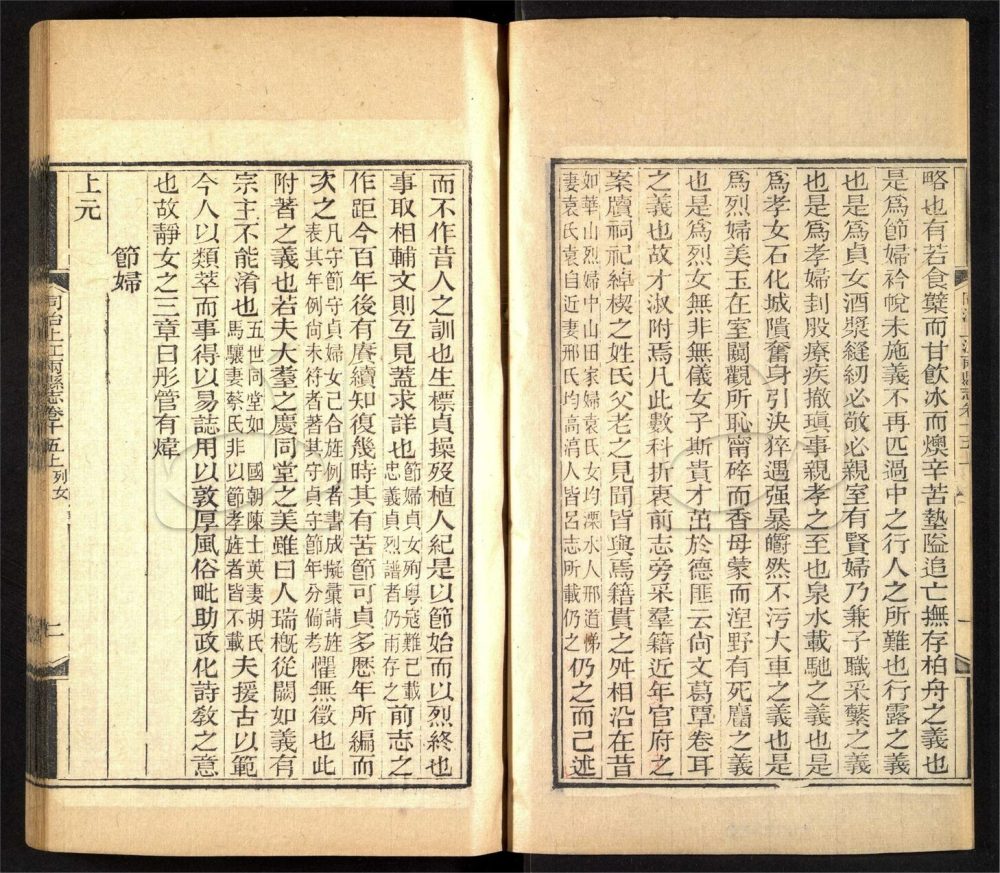 略也有若食櫱而甘飲冰而燠辛苦墊隘追亡撫存柏舟之義也
是爲節婦衿帨未施義不再匹過中之行人之所難也行露之義
也是爲貞女酒漿縫紉必敬必親室有賢婦乃兼子職采蘩之義
也是爲孝婦刲股療疾撤瑱事親孝之至也泉水載馳之義也是
爲孝女石化城隤奮身引決猝遇强暴皭然不污大車之義也是
爲烈婦美玉在室闚觀所恥甯碎而香毋蒙而湼野有死麕之義
也是爲烈女無非無儀女子斯貴才茁於德匪云尙文葛覃卷耳
之義也故才淑附焉凡此數科折衷前志旁采羣籍近年官府之
案牘祠祀綽楔之姓氏父老之見聞皆與焉籍貫之舛相沿在昔
如華山烈婦中山田家婦袁氏女均溧水人邢道悌
妻袁氏袁自近妻邢氏均高湻人皆呂志所載仍之
仍之而已述
而不作昔人之訓也生標貞操歿植人紀是以節始而以烈終也
事取相輔文則互見蓋求詳也
節婦貞女列粤寇難已載
忠義貞烈譜者仍兩存之
前志之
作距今百年後有賡續知復幾時其有苦節可貞多歷年所編而
次之
凡守節守貞婦女已合旌例者書成擬彙請旌
表其年例尙未符者著其守貞守節年分備考
懼無徵也此
附著之義也若夫大耋之慶同堂之美雖曰人瑞槪從闕如義有
宗主不能淆也
五世同堂如 國朝陳士英妻胡氏
馬驤妻蔡氏非以節孝旌者皆不載
夫援古以範
今人以類萃而事得以易誌用以敦厚風俗毗助政化詩敎之意
也故靜女之三章曰彤管有煒
節婦
上元
同治上江兩縣志卷十五上列女
二